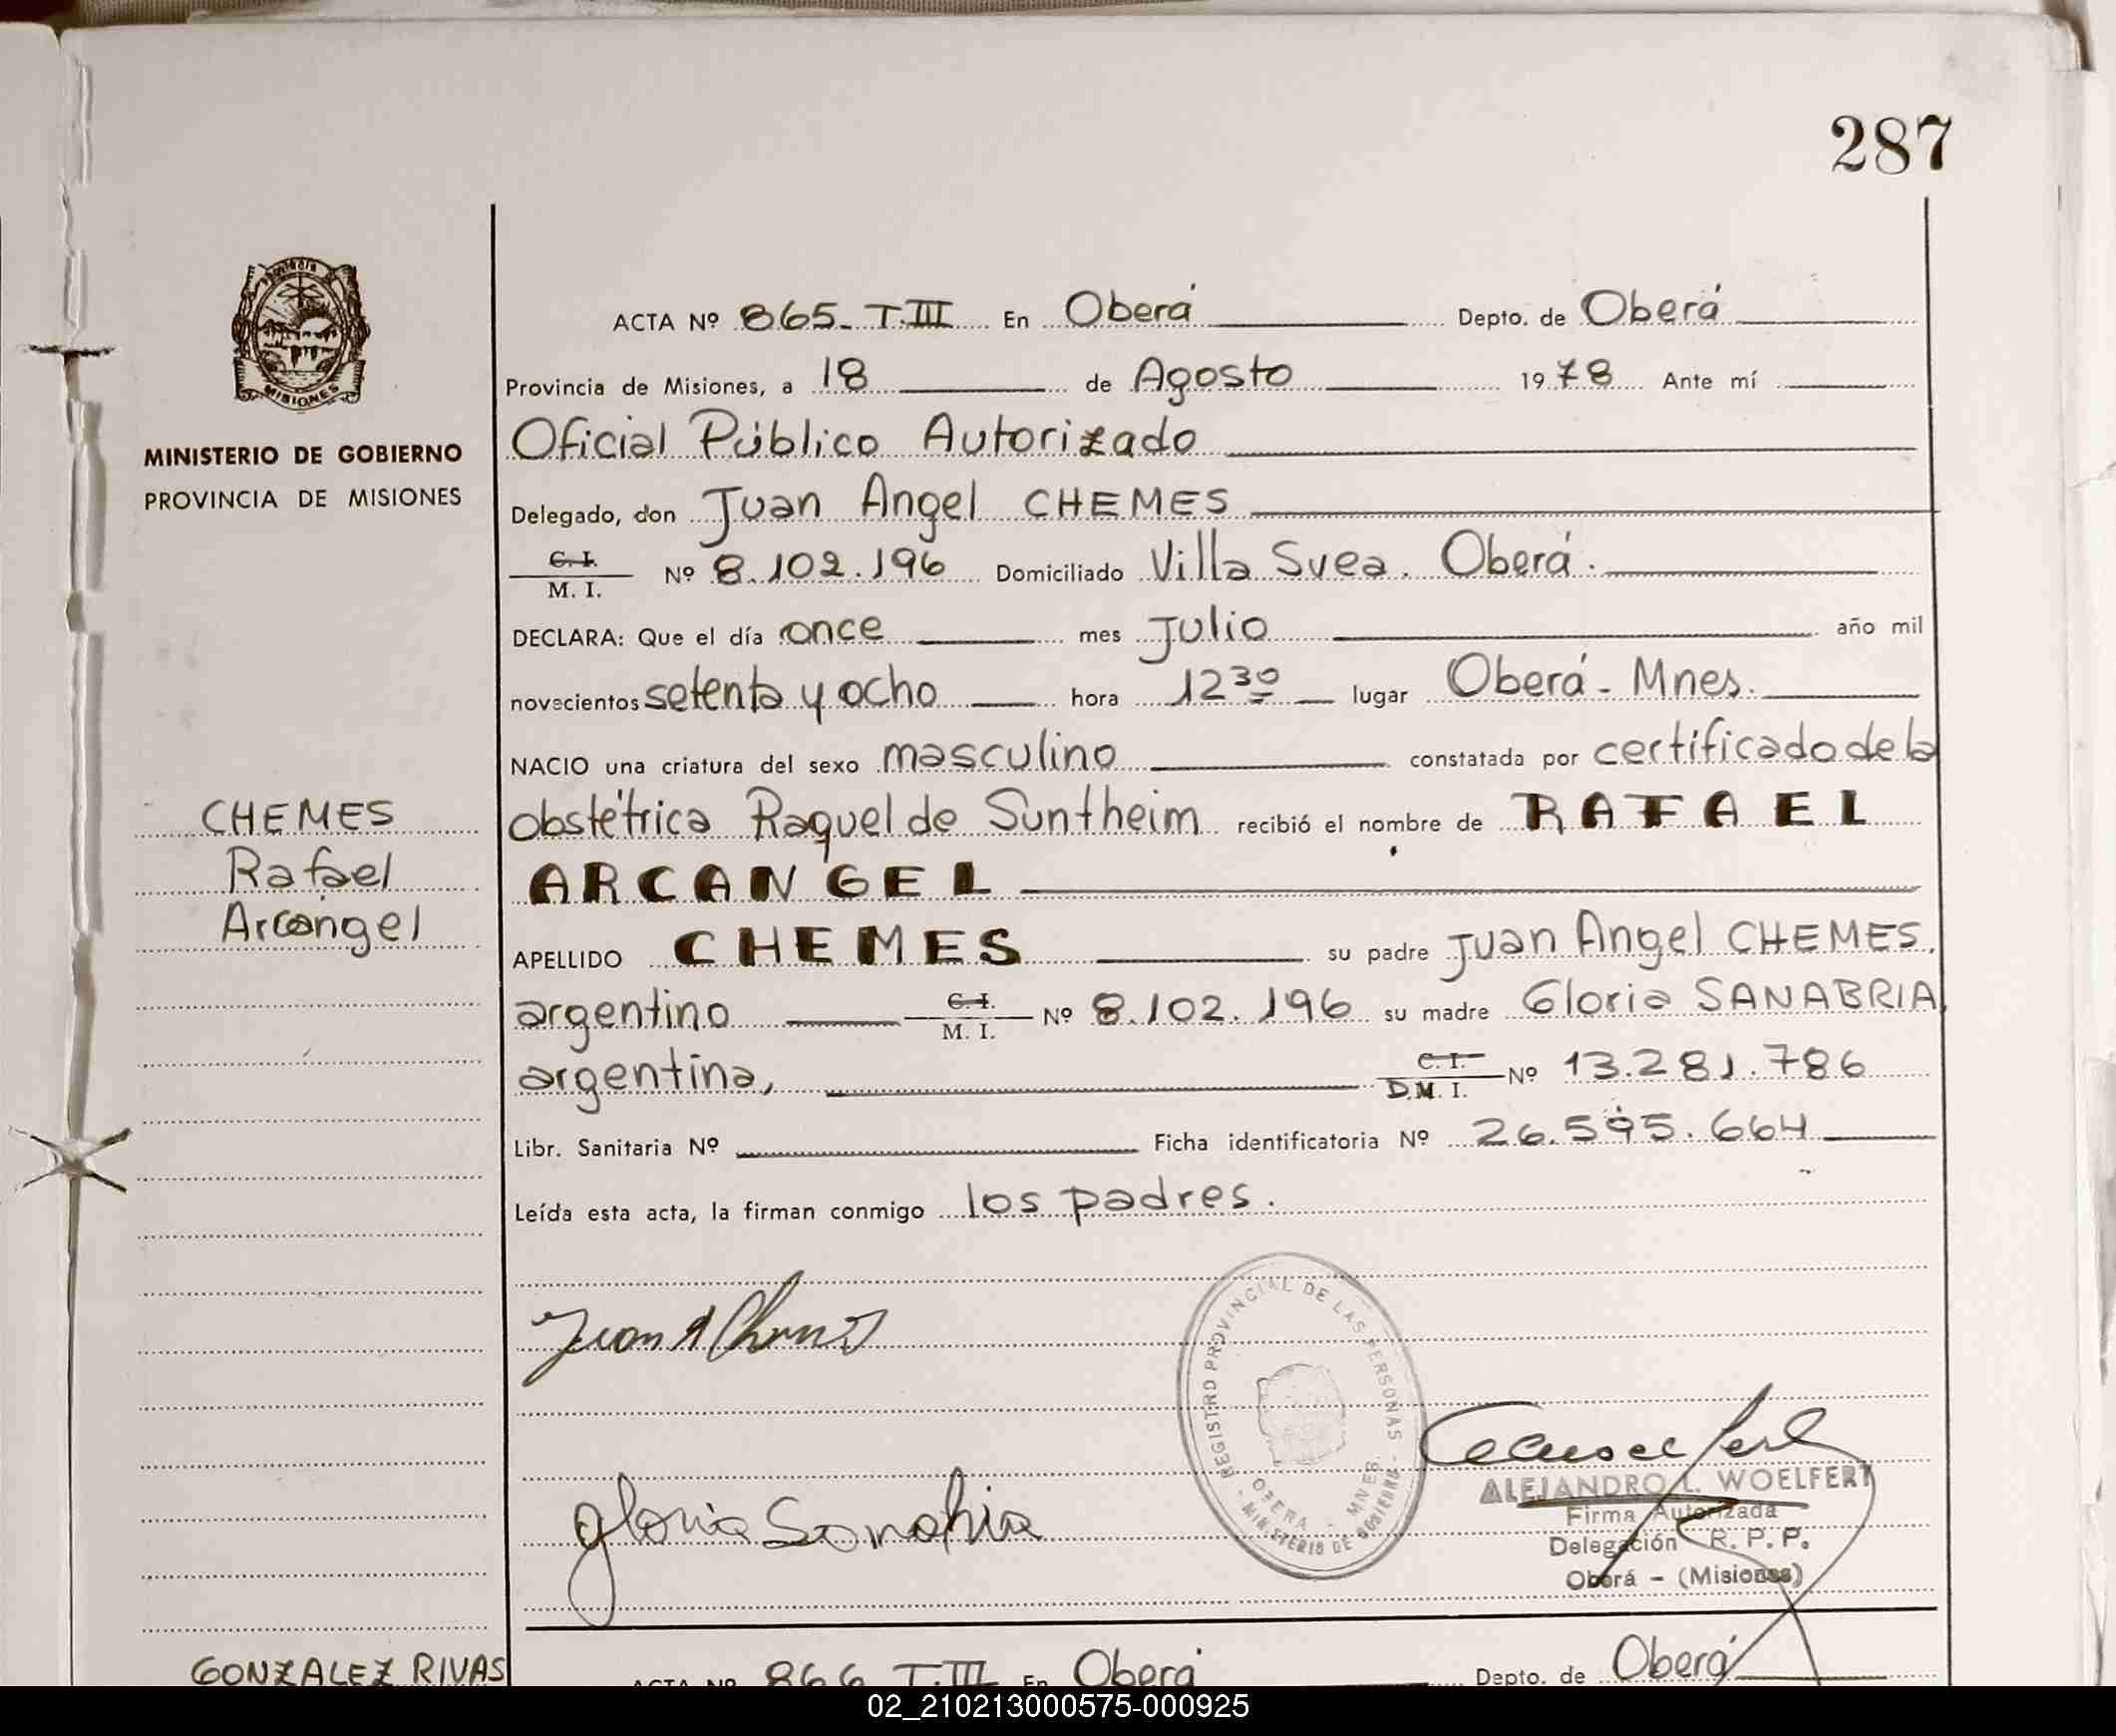 287
ACTA Nº 865_ T.III En Oberá Depto. de Oberá
Provincia de Misiones, a 18 de Agosto 1978 Ante mí
Oficial Público Autorizado
MINISTERIO DE GOBIERNO
PROVINCIA DE MISIONES
Delegado, don Juan Angel CHEMES
C. I.
M. I. Nº 8.102.196 Domiciliado Villa Svea. Oberá.
DECLARA: Que el día once mes Julio año mil
novecientos setenta y ocho hora 12 30 lugar Oberá - Mnes.
NACIO una criatura del sexo masculino constatada por certificado de la
obstétrica Raquel de Suntheim recibió el nombre de RAFAEL
ARCANGEL
CHEMES
Rafael
Arcangel
APELLIDO CHEMES su padre Juan Angel CHEMES,
argentino C. I. M. I. Nº 8.102.196 su madre Gloria SANABRIA,
argentina, C. I. D.M. I. Nº 13.281.786
Libr. Sanitaria Nº Ficha identificatoria Nº 26.595.664
Leída esta acta, la firman conmigo los padres.
Juan A Chemes
REGISTRO PROVINCIAL DE LAS PERSONAS
OBERA - MNES
- MINISTERIO DE GOBIERNO -
gloria Sanabria
ALEJANDRO L. WOELFERT
Firma Autorizada
Delegación R. P. P.
Oberá - (Misiones)
GONZALEZ RIVAS
ACTA Nº 866 T.III En Oberá Depto. de Oberá
02_210213000575-000925